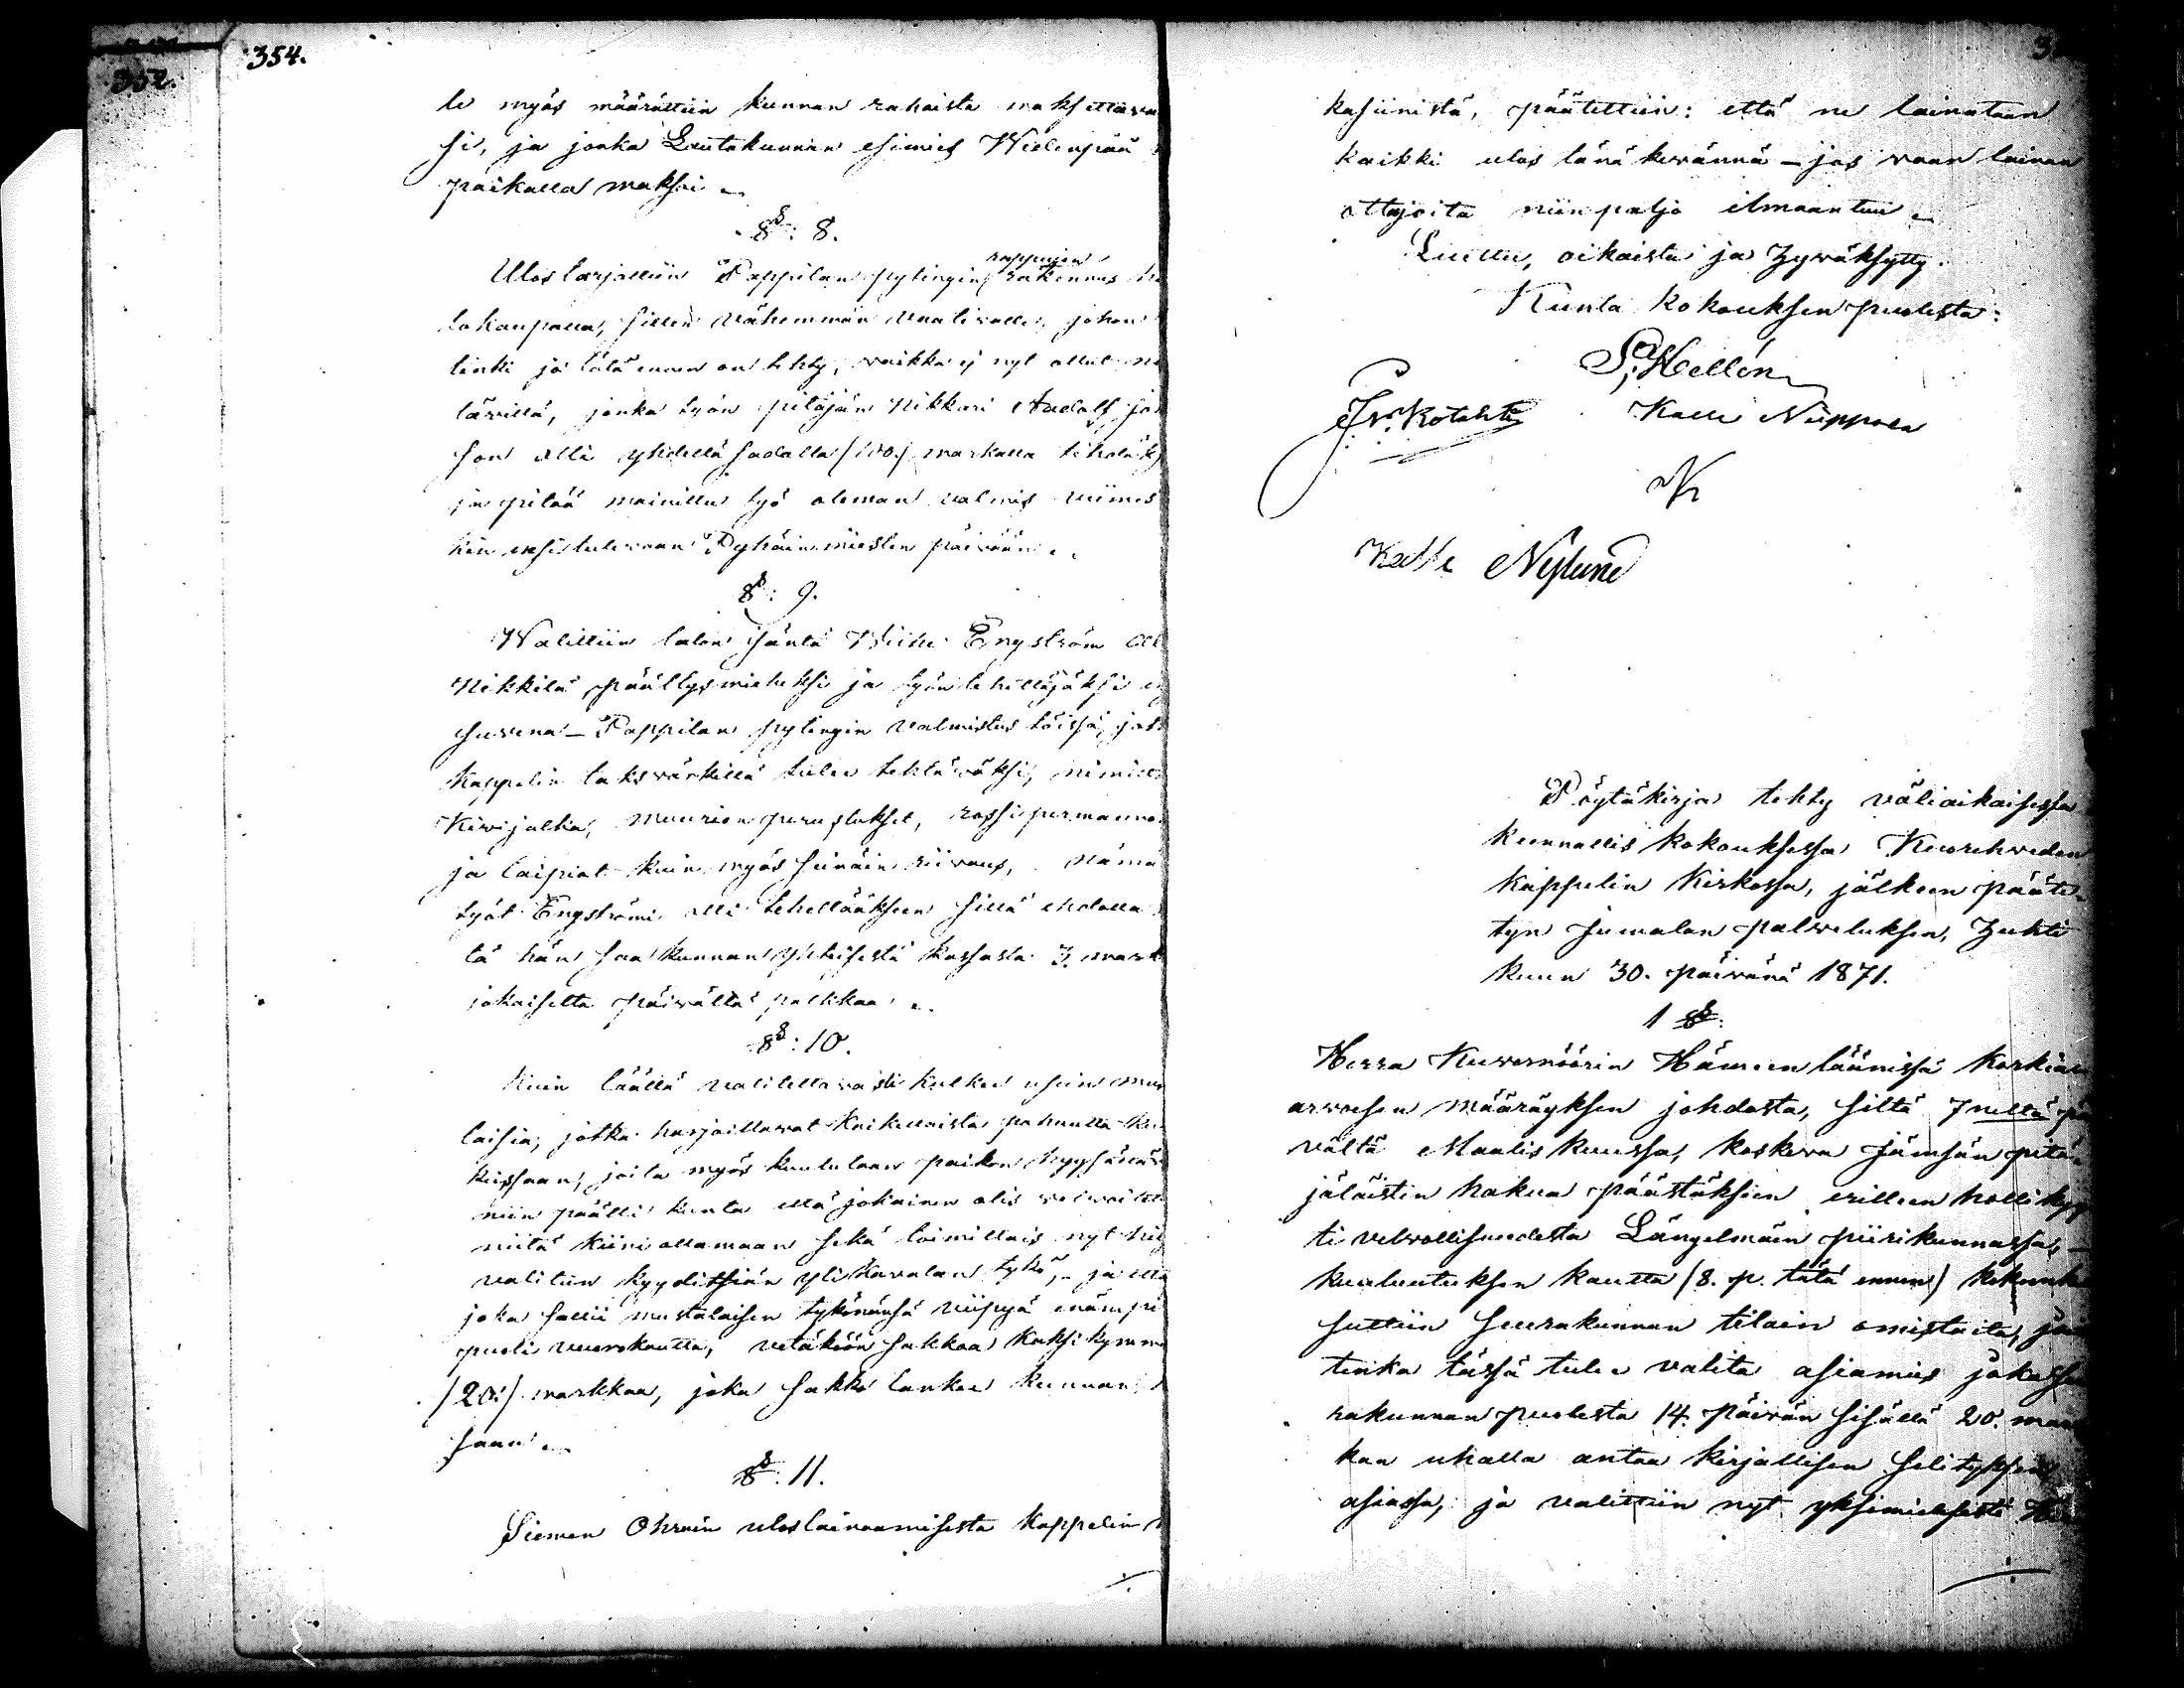 352.
354.
le myös määrättiin kunnan rahoista maksettava
si, ja jonka Lautakunnan esimies Wielenpää
paikalla maksoi
§: 8.
Ulos tarjottiin Pappilan pytingin rappujen rakennus
tokaupalla, sillen vähemmän vaativalle, johon
tinki jo tätä ennen on tehty, vaikka ej nyt ollut
tävillä, jonka työn pitäjän Nikkari Andolf
son otti yhdellä sadalla /100./ markalla tehdäk
ja pitää mainittu työ oleman valmis viimes
kin ensitulevaan Pyhäinmiesten päivään
§: 9.
Walittiin talon isäntä Wiihe Engström
Nikkilä päällysmieheksi ja työn tehettäjäksi
suvena – Pappilan pytingin valmistus töissä,
Kappelin taksvärkillä tulee tehtäväksi, nimitt
Kivijalka, Muurien perustukset, rossipermanno
ja laipiot kuin myös seinäin riivaus, näma
työt Engströmi otti tehettääkseen sillä ehdolla
tä hän saa kunnan yhteisestä kassasta 3. mark
jokaiselta päivältä palkkaa
§: 10.
Kuin täällä valitettavasti kulkee usein mus
laisia, jotka harjoittavat kaikellaista pahuutta
kuissaan, joita myös kuulutaan paikon hyysäävän
niin päätti kunta että jokainen olis velvoitettu
niitä kiini ottamaan sekä toimittais nyt
valitun kyyditsiän yli Kavalan tykö, ja että
joka sallii mustalaisen tykönänsä viipyä enämpi
puoli vuorokautta, vetäköön sakkoa kaksikymme
/20:/ markkaa, joka sakko lankee kunnan
saan
§: 11.
Siemen Ohrain uloslainaamisesta Kappelin
kasiinistä, päätettiin: että ne lainataan
kaikki ulos tänä kevännä – jos vaan lainan
ottajoita niin paljo ilmaantuu
Luettu, oikaistu ja hyväksytty.
Kunta kokouksen puolesta:
Hellén
Kalle Niippala
Kalle Nylund
Pöytäkirja tehty väliaikaisessa
kunnallis kokouksessa Kuorehveden
Kappelin Kirkossa, jälkeen pääte-
tyn Jumalan palveluksen, Huhti
kuun 30. päivänä 1871.
1 §:
Herra Kuvernöörin Hämeen läänissä korkia
arvoisen määräyksen johdosta, siltä 7neltä pä
vältä Maalis kuussa, koskeva Jämsän pitä
jäläistin hakua päästäksien erilleen hollikyy
ti velvollisuudesta Längelmäen piirikunnassa, –
kuulutuksen kautta /8. p. tätä ennen/ kokoonku
suttiin Seurakunnan tilain omistaita,
tenka tässä tulee valita asiamies jokassa
rakunnan puolesta 14. päivän sisällä 20. mar
kan uhalla antaa kirjallisen selityksen
asiassa, ja valittiin nyt yksimielisesti